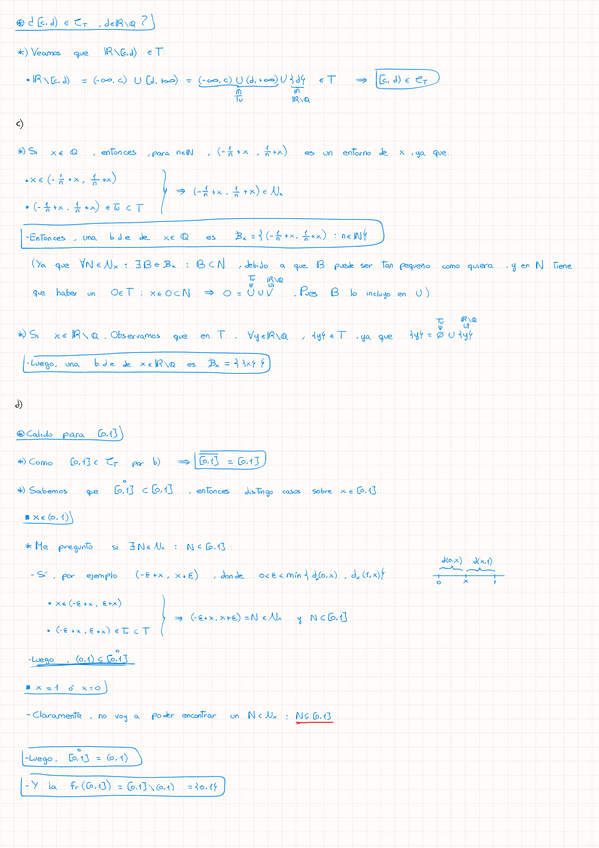 ⊛ ¿[c,d) ∈ C_T , d∈ℝ\ℚ ?
*) Veamos que ℝ\[c,d) ∈ T
• ℝ\[c,d) = (-∞,c) ∪ [d,+∞) = (-∞,c) ∪ (d,+∞) ∪ {d} ∈ T ⇒ [c,d) ∈ C_T
∩ Tu ∩ ℝ\ℚ
c)
*) Si x∈ℚ , entonces , para n∈ℕ , (-1/n +x , 1/n +x) es un entorno de x , ya que
• x∈(-1/n +x , 1/n +x)
⇒ (-1/n +x , 1/n +x) ∈ N_x
• (-1/n +x , 1/n +x) ∈ Tu ⊂ T
-Entonces , una b d e de x∈ℚ es B_x = { (-1/n +x , 1/n +x) : n∈ℕ }
(Ya que ∀N∈N_x : ∃B∈B_x : B⊂N , debido a que B puede ser tan pequeno como quiera , y en N tiene
que haber un O∈T : x∈O⊂N ⇒ O = U ∪ V . Pues B lo incluyo en U)
*) Si x∈ℝ\ℚ . Observamos que en T , ∀y∈ℝ\ℚ , {y} ∈ T , ya que {y} = ∅ ∪ {y}
-Luego, una b d e de x∈ℝ\ℚ es B_x = { {x} }
d)
⊛ Calculo para [0,1]
*) Como [0,1] ∈ C_T por b) ⇒ [0,1] = [0,1]
*) Sabemos que [0,1] ⊂ [0,1] , entonces distingo casos sobre x∈[0,1]
▪ x∈(0,1)
* Me pregunto si ∃N∈N_x : N⊂[0,1]
- Sí , por ejemplo (-ε+x , x+ε) , donde 0<ε<min{ d(0,x) , d(1,x) }
d(0,x) d(x,1)
0 x 1
• x∈(-ε+x , ε+x)
⇒ (-ε+x , x+ε) = N ∈ N_x y N⊂[0,1]
• (-ε+x , ε+x) ∈ Tu ⊂ T
-Luego , (0,1) ⊆ [0,1]
▪ x=1 ó x=0
- Claramente , no voy a poder encontrar un N∈N_x : N⊆[0,1]
-Luego, [0,1] = (0,1)
- Y la Fr([0,1]) = [0,1]\(0,1) = {0,1}